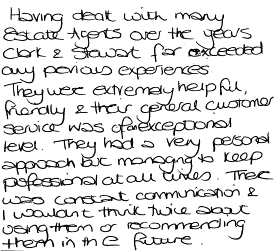 Having dealt with many
Estate Agents over the years
Clark & Stewart far exceeded
any previous experiences.
They were extremely helpful,
friendly & their general customer
service was of exceptional
level. They had a very personal
approach but managing to keep
professional at all times. There
was constant communication &
I wouldn't think twice about
using them or recommending
them in the future.